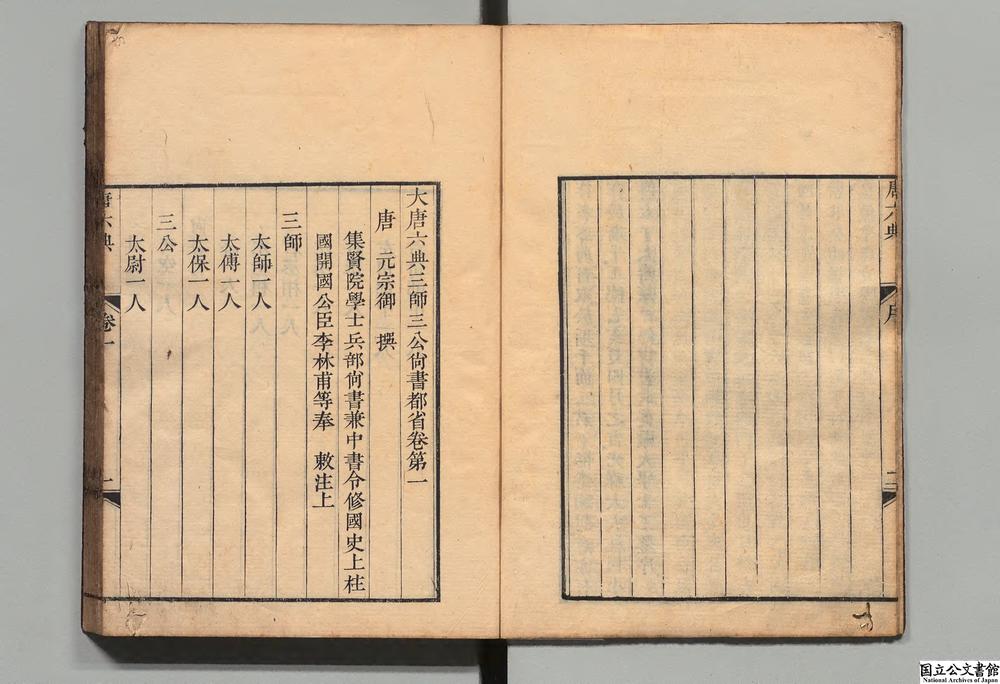 唐六典
序
二
大唐六典三師三公尙書都省卷第一
唐 元宗御 撰
集賢院學士兵部尙書兼中書令修國史上柱
國開國公臣李林甫等奉 敕注上
三師
太師一人
太傅一人
太保一人
三公
太尉一人
唐六典
卷一
一
国立公文書館
National Archives of Japan